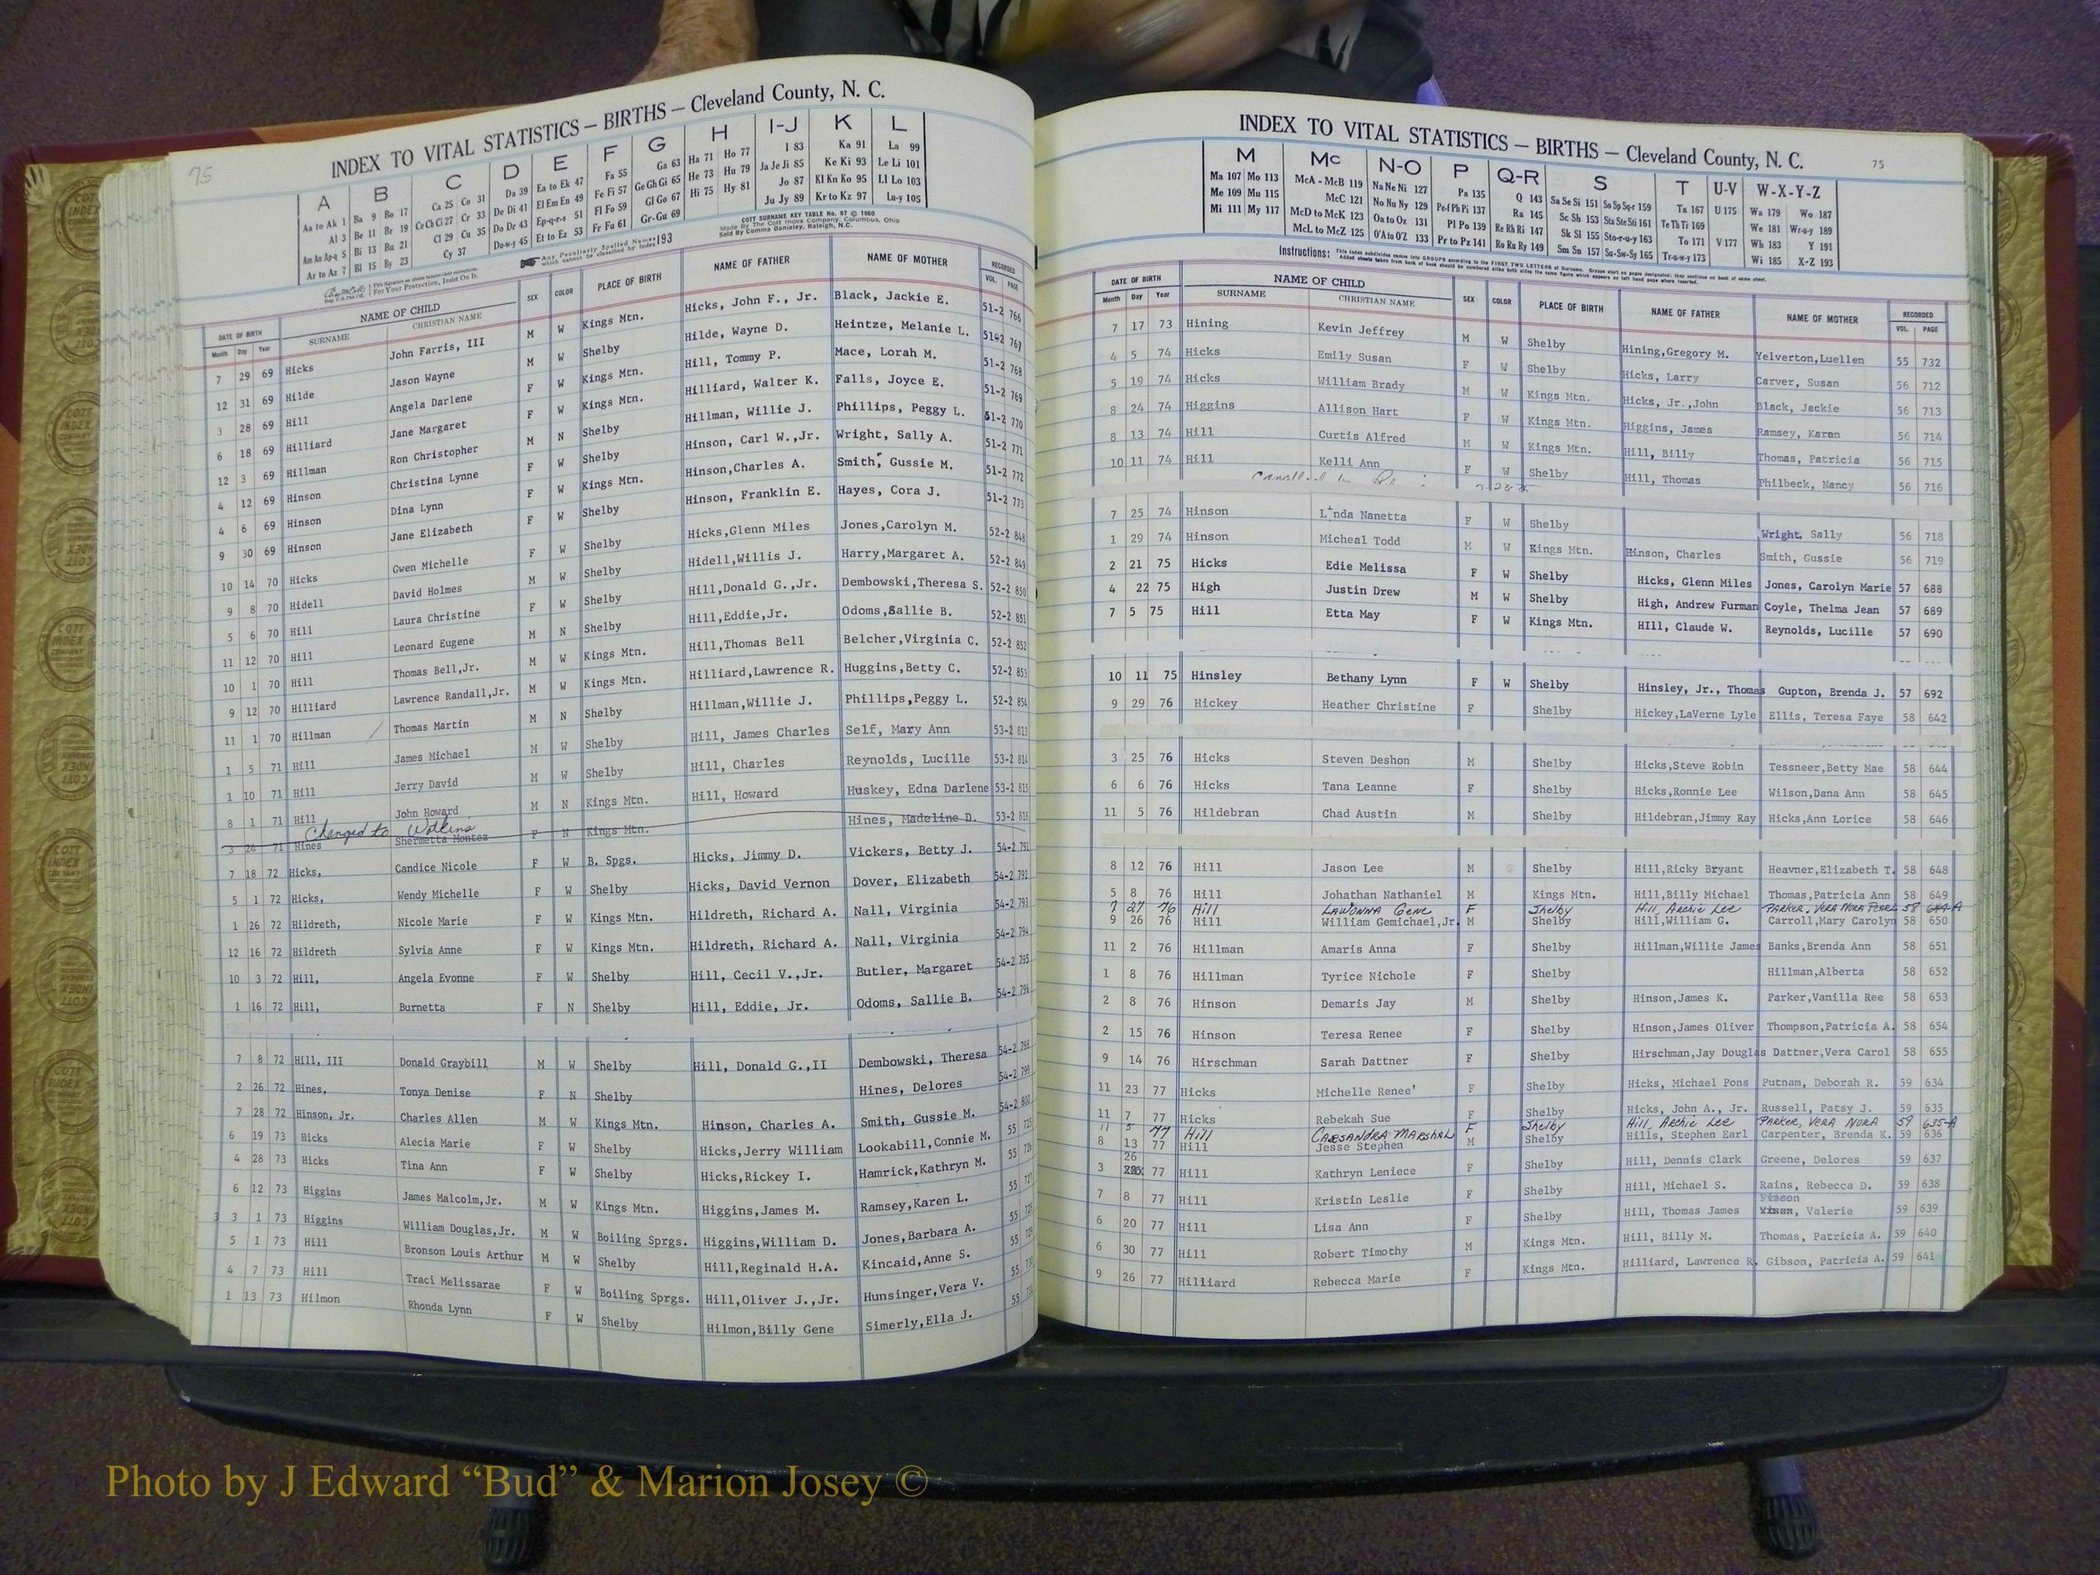 75
INDEX TO VITAL STATISTICS — BIRTHS — Cleveland County, N. C.
A B C D E F G H I-J K L
Aa to Ak 1 Ba 9 Bo 17 Ca 25 Co 31 Da 39 Ea to Ek 47 Fa 55 Ga 63 Ha 71 Ho 77 I 83 Ka 91 La 99
Al 3 Be 11 Br 19 Ce Ch Ci 27 Cr 33 De Di 41 El Em En 49 Fe Fi 57 Ge Gh Gi 65 He 73 Hu 79 Ja Je Ji 85 Ke Ki 93 Le Li 101
Am An Ap-q 5 Bi 13 Bu 21 Cl 29 Cu 35 Do Dr 43 Ep-q-r-s 51 Fl Fo 59 Gl Go 67 Hi 75 Hy 81 Jo 87 Kl Kn Ko 95 Ll Lo 103
Ar to Az 7 Bl 15 By 23 Cy 37 Du-w-y 45 Et to Ez 53 Fr Fu 61 Gr-Gu 69 Ju Jy 89 Kr to Kz 97 Lu-y 105
Any Peculiarly Spelled Names which cannot be classified by Index 193
COTT SURNAME KEY TABLE No. 97 © 1960
Made By The Cott Index Company, Columbus, Ohio
Sold By Comma Danieley, Raleigh, N.C.
For Your Protection, Insist On It.
DATE OF BIRTH NAME OF CHILD SEX COLOR PLACE OF BIRTH NAME OF FATHER NAME OF MOTHER RECORDED
Month Day Year SURNAME CHRISTIAN NAME VOL. PAGE
7 29 69 Hicks John Farris, III M W Kings Mtn. Hicks, John F., Jr. Black, Jackie E. 51-2 766
12 31 69 Hilde Jason Wayne M W Shelby Hilde, Wayne D. Heintze, Melanie L. 51-2 767
3 28 69 Hill Angela Darlene F W Kings Mtn. Hill, Tommy P. Mace, Lorah M. 51-2 768
6 18 69 Hilliard Jane Margaret F W Kings Mtn. Hilliard, Walter K. Falls, Joyce E. 51-2 769
12 3 69 Hillman Ron Christopher M N Shelby Hillman, Willie J. Phillips, Peggy L. 51-2 770
4 12 69 Hinson Christina Lynne F W Shelby Hinson, Carl W.,Jr. Wright, Sally A. 51-2 771
4 6 69 Hinson Dina Lynn F W Kings Mtn. Hinson,Charles A. Smith, Gussie M. 51-2 772
9 30 69 Hinson Jane Elizabeth F W Shelby Hinson, Franklin E. Hayes, Cora J. 51-2 773
10 14 70 Hicks Gwen Michelle F W Shelby Hicks,Glenn Miles Jones,Carolyn M. 52-2 848
9 8 70 Hidell David Holmes M W Shelby Hidell,Willis J. Harry,Margaret A. 52-2 849
5 6 70 Hill Laura Christine F W Shelby Hill,Donald G.,Jr. Dembowski,Theresa S. 52-2 850
11 12 70 Hill Leonard Eugene M N Shelby Hill,Eddie,Jr. Odoms,Sallie B. 52-2 851
10 1 70 Hill Thomas Bell,Jr. M W Kings Mtn. Hill,Thomas Bell Belcher,Virginia C. 52-2 852
9 12 70 Hilliard Lawrence Randall,Jr. M W Kings Mtn. Hilliard,Lawrence R. Huggins,Betty C. 52-2 853
11 1 70 Hillman Thomas Martin M N Shelby Hillman,Willie J. Phillips,Peggy L. 52-2 854
1 5 71 Hill James Michael M W Shelby Hill, James Charles Self, Mary Ann 53-2 813
1 10 71 Hill Jerry David M W Shelby Hill, Charles Reynolds, Lucille 53-2 814
8 1 71 Hill John Howard M N Kings Mtn. Hill, Howard Huskey, Edna Darlene 53-2 815
Changed to Watkins
3 24 71 Hines Shermetta Montez F N Kings Mtn. Hines, Madeline D. 53-2 816
7 18 72 Hicks, Candice Nicole F W B. Spgs. Hicks, Jimmy D. Vickers, Betty J. 54-2 791
5 1 72 Hicks, Wendy Michelle F W Shelby Hicks, David Vernon Dover, Elizabeth 54-2 792
1 26 72 Hildreth, Nicole Marie F W Kings Mtn. Hildreth, Richard A. Nall, Virginia 54-2 793
12 16 72 Hildreth Sylvia Anne F W Kings Mtn. Hildreth, Richard A. Nall, Virginia 54-2 794
10 3 72 Hill, Angela Evonne F W Shelby Hill, Cecil V.,Jr. Butler, Margaret 54-2 795
1 16 72 Hill, Burnetta F N Shelby Hill, Eddie, Jr. Odoms, Sallie B. 54-2 796
7 8 72 Hill, III Donald Graybill M W Shelby Hill, Donald G.,II Dembowski, Theresa 54-2 798
2 26 72 Hines, Tonya Denise F N Shelby Hines, Delores 54-2 799
7 28 72 Hinson, Jr. Charles Allen M W Kings Mtn. Hinson, Charles A. Smith, Gussie M. 54-2 800
6 19 73 Hicks Alecia Marie F W Shelby Hicks,Jerry William Lookabill,Connie M. 55 725
4 28 73 Hicks Tina Ann F W Shelby Hicks,Rickey I. Hamrick,Kathryn M. 55 726
6 12 73 Higgins James Malcolm,Jr. M W Kings Mtn. Higgins,James M. Ramsey,Karen L. 55 727
3 3 1 73 Higgins William Douglas,Jr. M W Boiling Sprgs. Higgins,William D. Jones,Barbara A. 55 728
5 1 73 Hill Bronson Louis Arthur M W Shelby Hill,Reginald H.A. Kincaid,Anne S. 55 729
4 7 73 Hill Traci Melissarae F W Boiling Sprgs. Hill,Oliver J.,Jr. Hunsinger,Vera V. 55 730
1 13 73 Hilmon Rhonda Lynn F W Shelby Hilmon,Billy Gene Simerly,Ella J. 55
INDEX TO VITAL STATISTICS — BIRTHS — Cleveland County, N. C. 75
M Mc N-O P Q-R S T U-V W-X-Y-Z
Ma 107 Mo 113 McA - McB 119 Na Ne Ni 127 Pa 135 Q 143 Sa Se Si 151 So Sp Sq-r 159 Ta 167 U 175 Wa 179 Wo 187
Me 109 Mu 115 McC 121 No Nu Ny 129 Pe-f Ph Pi 137 Ra 145 Sc Sh 153 Sta Ste Sti 161 Te Th Ti 169 We 181 Wr-u-y 189
Mi 111 My 117 McD to McK 123 Oa to Oz 131 Pl Po 139 Re Rh Ri 147 Sk Sl 155 Sto-r-u-y 163 To 171 V 177 Wh 183 Y 191
McL to McZ 125 O'A to O'Z 133 Pr to Pz 141 Ro Ru Ry 149 Sm Sn 157 Su-Sw-Sy 165 Tr-u-w-y 173 Wi 185 X-Z 193
Instructions: This index subdivides names into GROUPS according to the FIRST TWO LETTERS of Surname.
DATE OF BIRTH NAME OF CHILD SEX COLOR PLACE OF BIRTH NAME OF FATHER NAME OF MOTHER RECORDED
Month Day Year SURNAME CHRISTIAN NAME VOL. PAGE
7 17 73 Hining Kevin Jeffrey M W Shelby Hining,Gregory M. Yelverton,Luellen 55 732
4 5 74 Hicks Emily Susan F W Shelby Hicks, Larry Carver, Susan 56 712
5 19 74 Hicks William Brady M W Kings Mtn. Hicks, Jr.,John Black, Jackie 56 713
8 24 74 Higgins Allison Hart F W Kings Mtn. Higgins, James Ramsey, Karen 56 714
8 13 74 Hill Curtis Alfred M W Kings Mtn. Hill, Billy Thomas, Patricia 56 715
10 11 74 Hill Kelli Ann F W Shelby Hill, Thomas Philbeck, Nancy 56 716
7 25 74 Hinson Linda Nanetta F W Shelby Wright, Sally 56 718
1 29 74 Hinson Micheal Todd M W Kings Mtn. Hinson, Charles Smith, Gussie 56 719
2 21 75 Hicks Edie Melissa F W Shelby Hicks, Glenn Miles Jones, Carolyn Marie 57 688
4 22 75 High Justin Drew M W Shelby High, Andrew Furman Coyle, Thelma Jean 57 689
7 5 75 Hill Etta May F W Kings Mtn. HIll, Claude W. Reynolds, Lucille 57 690
10 11 75 Hinsley Bethany Lynn F W Shelby Hinsley, Jr., Thomas Gupton, Brenda J. 57 692
9 29 76 Hickey Heather Christine F Shelby Hickey,LaVerne Lyle Ellis, Teresa Faye 58 642
3 25 76 Hicks Steven Deshon M Shelby Hicks,Steve Robin Tessneer,Betty Mae 58 644
6 6 76 Hicks Tana Leanne F Shelby Hicks,Ronnie Lee Wilson,Dana Ann 58 645
11 5 76 Hildebran Chad Austin M Shelby Hildebran,Jimmy Ray Hicks,Ann Lorice 58 646
8 12 76 Hill Jason Lee M Shelby Hill,Ricky Bryant Heavner,Elizabeth T. 58 648
5 8 76 Hill Johathan Nathaniel M Kings Mtn. Hill,Billy Michael Thomas,Patricia Ann 58 649
7 27 76 Hill LAWONNA Gene F Shelby Hill, Archie Lee PARKER, VERA NORA PEARL 58 649-A
9 26 76 Hill William Gemichael,Jr. M Shelby Hill,William G. Carroll,Mary Carolyn 58 650
11 2 76 Hillman Amaris Anna F Shelby Hillman,Willie James Banks,Brenda Ann 58 651
1 8 76 Hillman Tyrice Nichole F Shelby Hillman,Alberta 58 652
2 8 76 Hinson Demaris Jay M Shelby Hinson,James K. Parker,Vanilla Ree 58 653
2 15 76 Hinson Teresa Renee F Shelby Hinson,James Oliver Thompson,Patricia A. 58 654
9 14 76 Hirschman Sarah Dattner F Shelby Hirschman,Jay Douglas Dattner,Vera Carol 58 655
11 23 77 Hicks Michelle Renee' F Shelby Hicks, Michael Pons Putnam, Deborah R. 59 634
11 7 77 Hicks Rebekah Sue F Shelby Hicks, John A., Jr. Russell, Patsy J. 59 635
11 5 77 Hill CASSANDRA MARSHAL F Shelby Hill, Archie Lee PARKER, VERA NORA 59 635-A
8 13 77 Hill Jesse Stephen M Shelby Hills, Stephen Earl Carpenter, Brenda K. 59 636
3 26 77 Hill Kathryn Leniece F Shelby Hill, Dennis Clark Greene, Delores 59 637
7 8 77 Hill Kristin Leslie F Shelby Hill, Michael S. Rains, Rebecca D. 59 638
6 20 77 Hill Lisa Ann F Shelby Hill, Thomas James Valerie 59 639
6 30 77 Hill Robert Timothy M Kings Mtn. Hill, Billy M. Thomas, Patricia A. 59 640
9 26 77 Hilliard Rebecca Marie F Kings Mtn. Hilliard, Lawrence R. Gibson, Patricia A. 59 641
Photo by J Edward “Bud” & Marion Josey ©